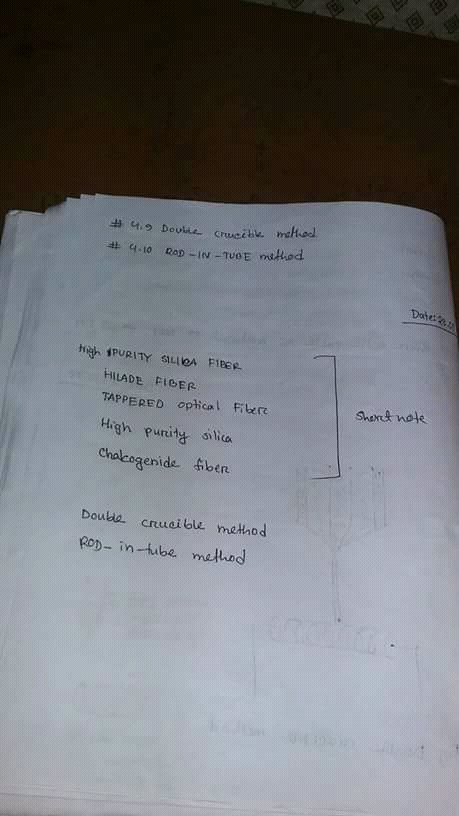 # 4.9 Double crucible method
# 4.10 ROD-IN-TUBE method
Date:
High PURITY SILICA FIBER
HILADE FIBER
TAPPERED optical Fiber
High purity silica
Chalcogenide fiber
Short note
Double crucible method
ROD-in-tube method